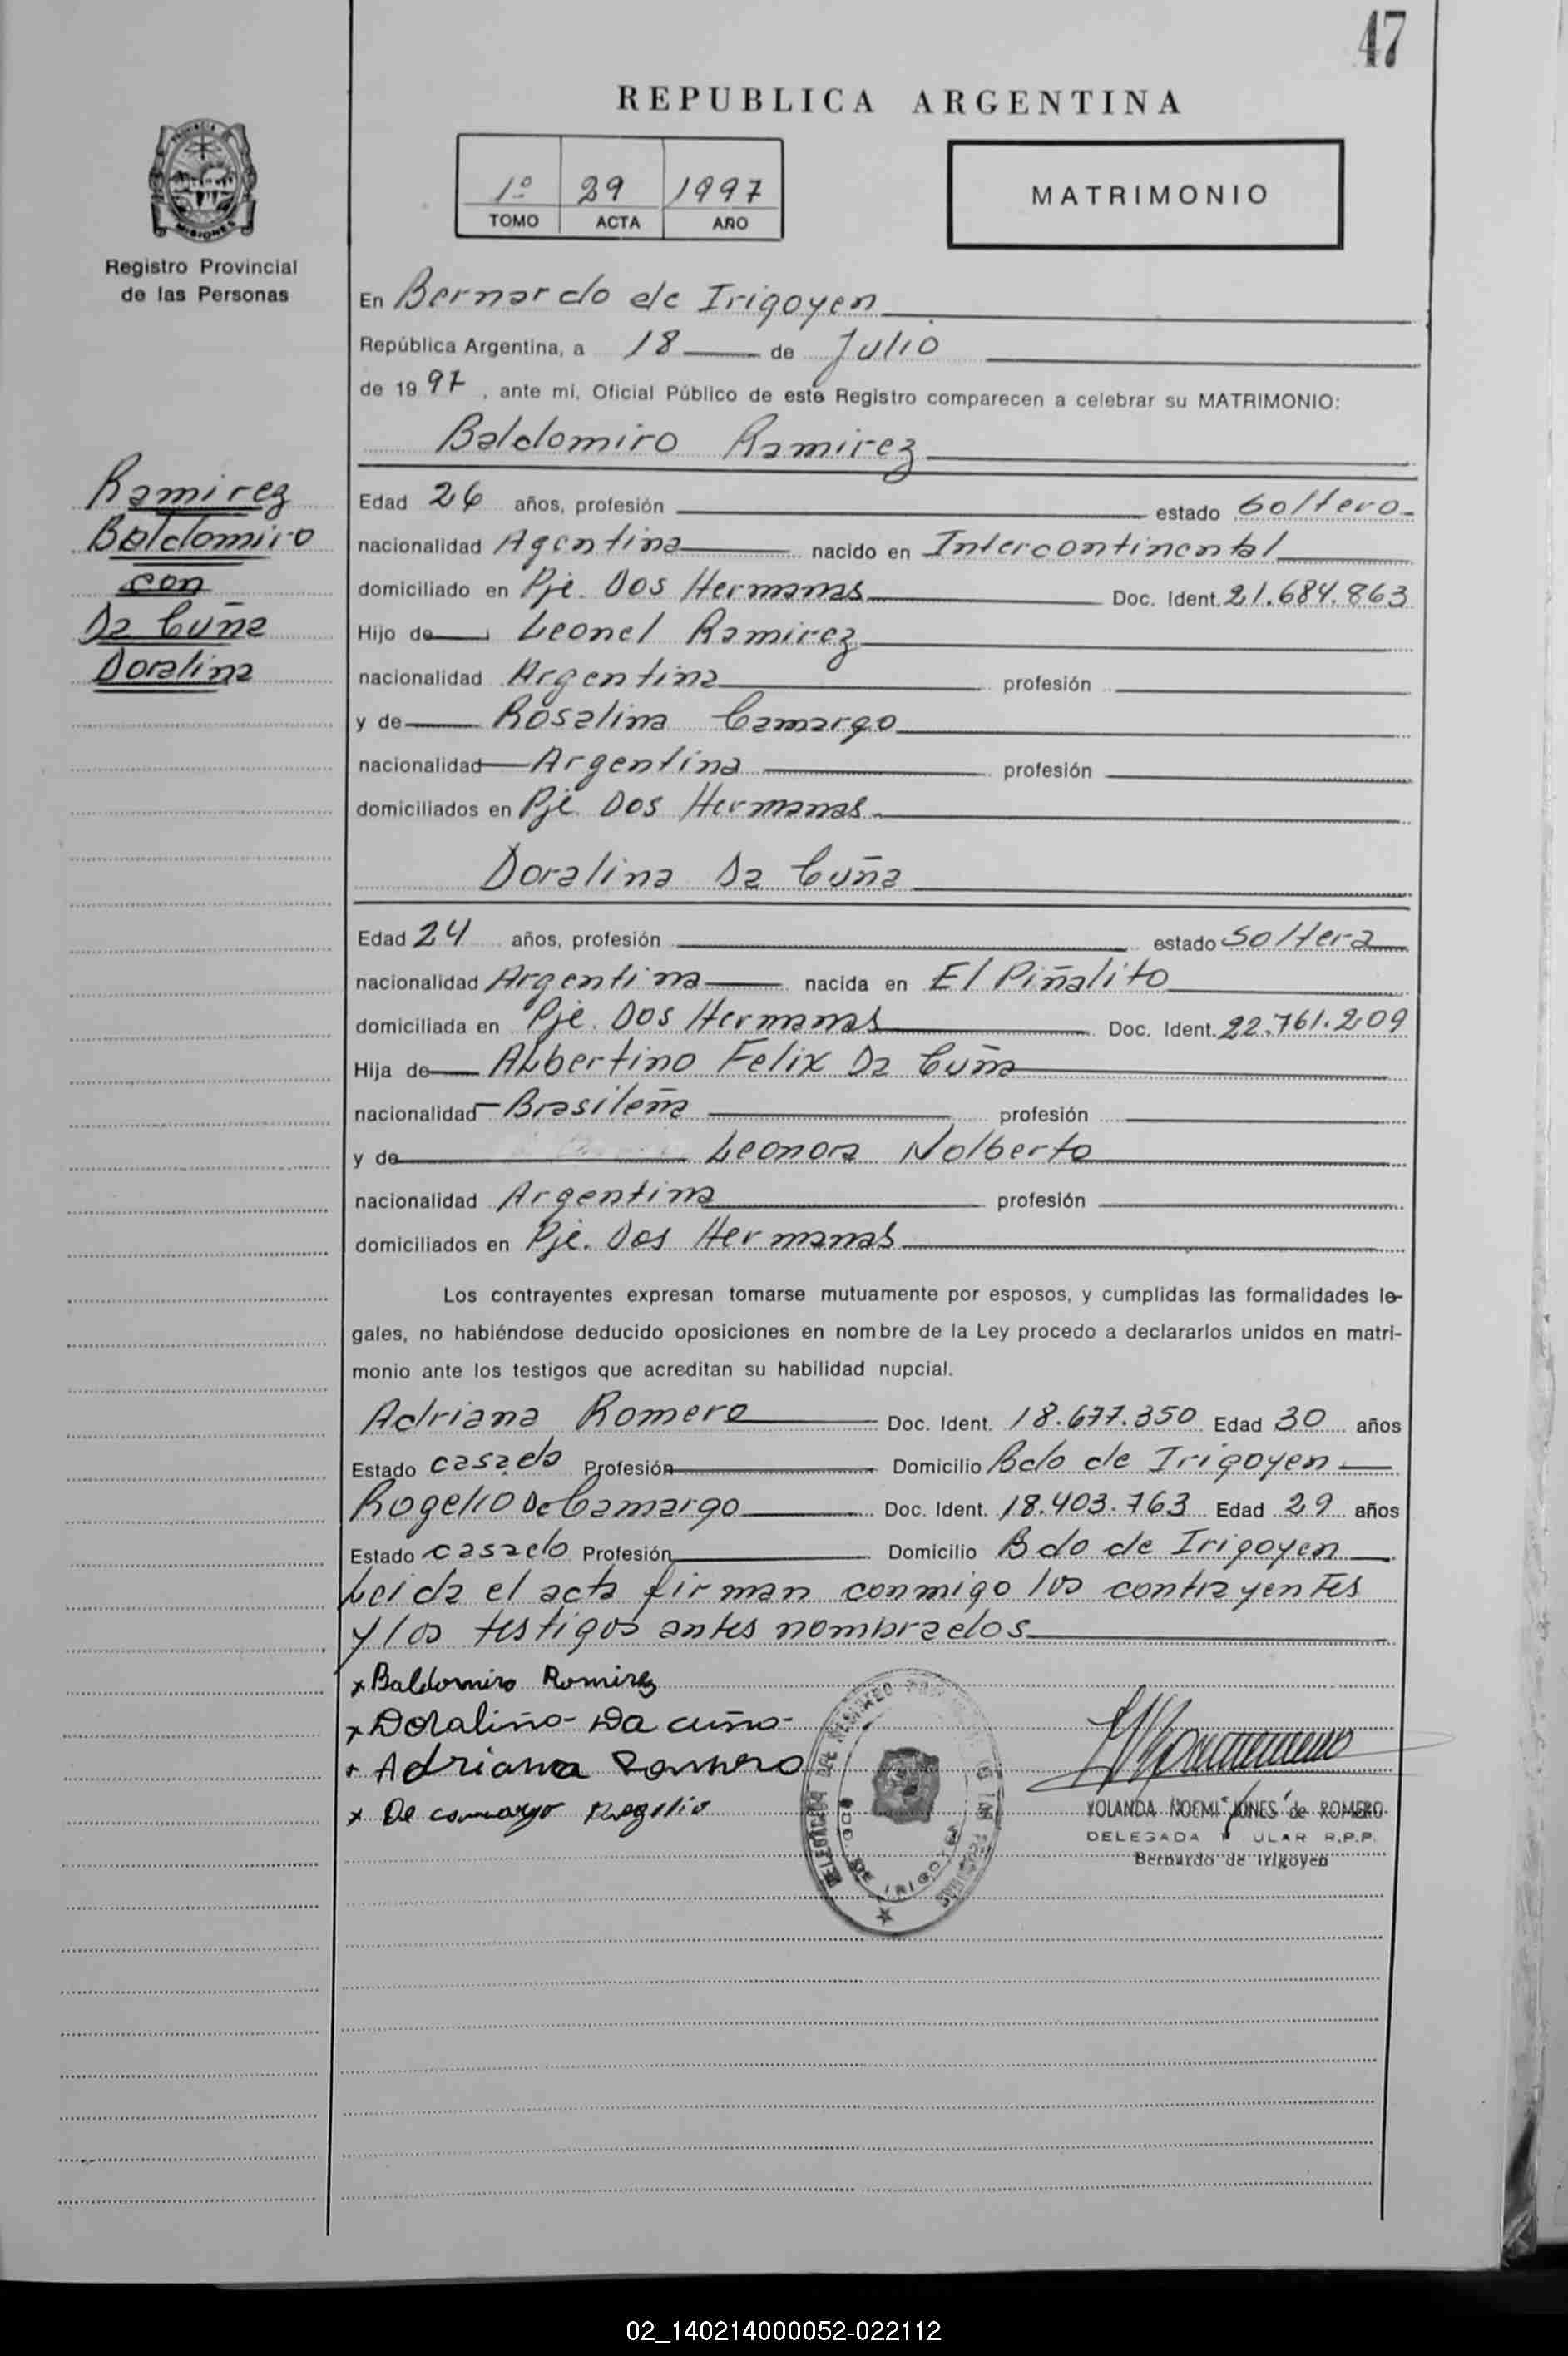 47
REPUBLICA ARGENTINA
1º 29 1997
TOMO ACTA AÑO
MATRIMONIO
PROVINCIA DE
MISIONES
Registro Provincial
de las Personas
En Bernardo de Irigoyen
República Argentina, a 18 de Julio
de 1997, ante mí, Oficial Público de este Registro comparecen a celebrar su MATRIMONIO:
Baldomiro Ramirez
Ramirez
Baldomiro
con
Da Cuña
Doralina
Edad 26 años, profesión estado Soltero
nacionalidad Agentina nacido en Intercontinental
domiciliado en Pje. Dos Hermanas Doc. Ident. 21.684.863
Hijo de Leonel Ramirez
nacionalidad Argentina profesión
y de Rosalina Camargo
nacionalidad Argentina profesión
domiciliados en Pje. Dos Hermanas
Doralina Da Cuña
Edad 24 años, profesión estado Soltera
nacionalidad Argentina nacida en El Piñalito
domiciliada en Pje. Dos Hermanas Doc. Ident. 22.761.209
Hija de Albertino Felix Da Cuña
nacionalidad Brasileña profesión
y de Leonora Nolberto
nacionalidad Argentina profesión
domiciliados en Pje. Dos Hermanas
Los contrayentes expresan tomarse mutuamente por esposos, y cumplidas las formalidades le-
gales, no habiéndose deducido oposiciones en nombre de la Ley procedo a declararlos unidos en matri-
monio ante los testigos que acreditan su habilidad nupcial.
Adriana Romero Doc. Ident. 18.677.350 Edad 30 años
Estado casado Profesión Domicilio Bdo de Irigoyen
Rogelio De Camargo Doc. Ident. 18.403.763 Edad 29 años
Estado casado Profesión Domicilio Bdo de Irigoyen
Leida el acta firman conmigo los contrayentes
y los testigos antes nombrados
x Baldomiro Ramirez
x Doraliña Da cuña
x Adriana Romero
x De camargo Rogelio
BDO. DE IRIGOYEN
YOLANDA NOEMI JONES de ROMERO
DELEGADA R.P.P.
Bernardo de Irigoyen
02_140214000052-022112